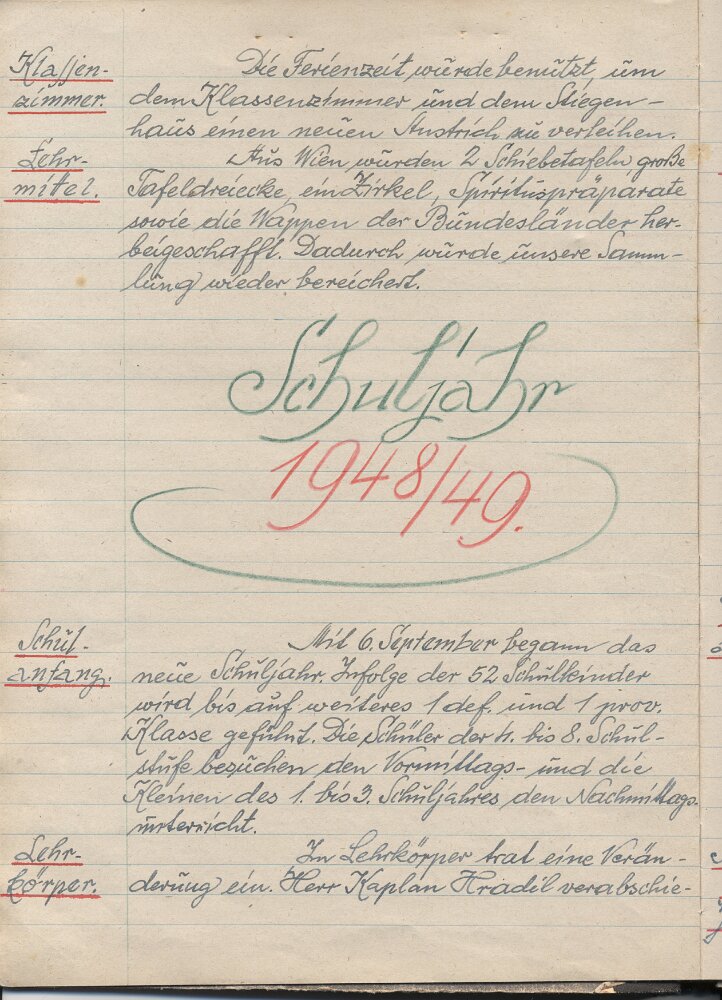 Klassen-
zimmer.
Die Ferienzeit wurde benützt, um
dem Klassenzimmer und dem Stiegen-
haus einen neuen Anstrich zu verleihen.
Lehr-
mittel.
Aus Wien wurden 2 Schiebetafeln große
Tafeldreiecke, ein Zirkel, Spirituspräparate
sowie die Wappen der Bundesländer her-
beigeschafft. Dadurch wurde unsere Samm-
lung wieder bereichert.
Schuljahr
1948/49.
Schul-
anfang.
Mit 6. September begann das
neue Schuljahr. Infolge der 52 Schulkinder
wird bis auf weiteres 1 def. und 1 prov.
Klasse geführt. Die Schüler der 4. bis 8. Schul-
stufe besuchen den Vormittags- und die
Kleinen des 1. bis 3. Schuljahres den Nachmittags-
unterricht.
Lehr-
körper.
In Lehrkörper trat eine Verän-
derung ein. Herr Kaplan Hradil verabschie-